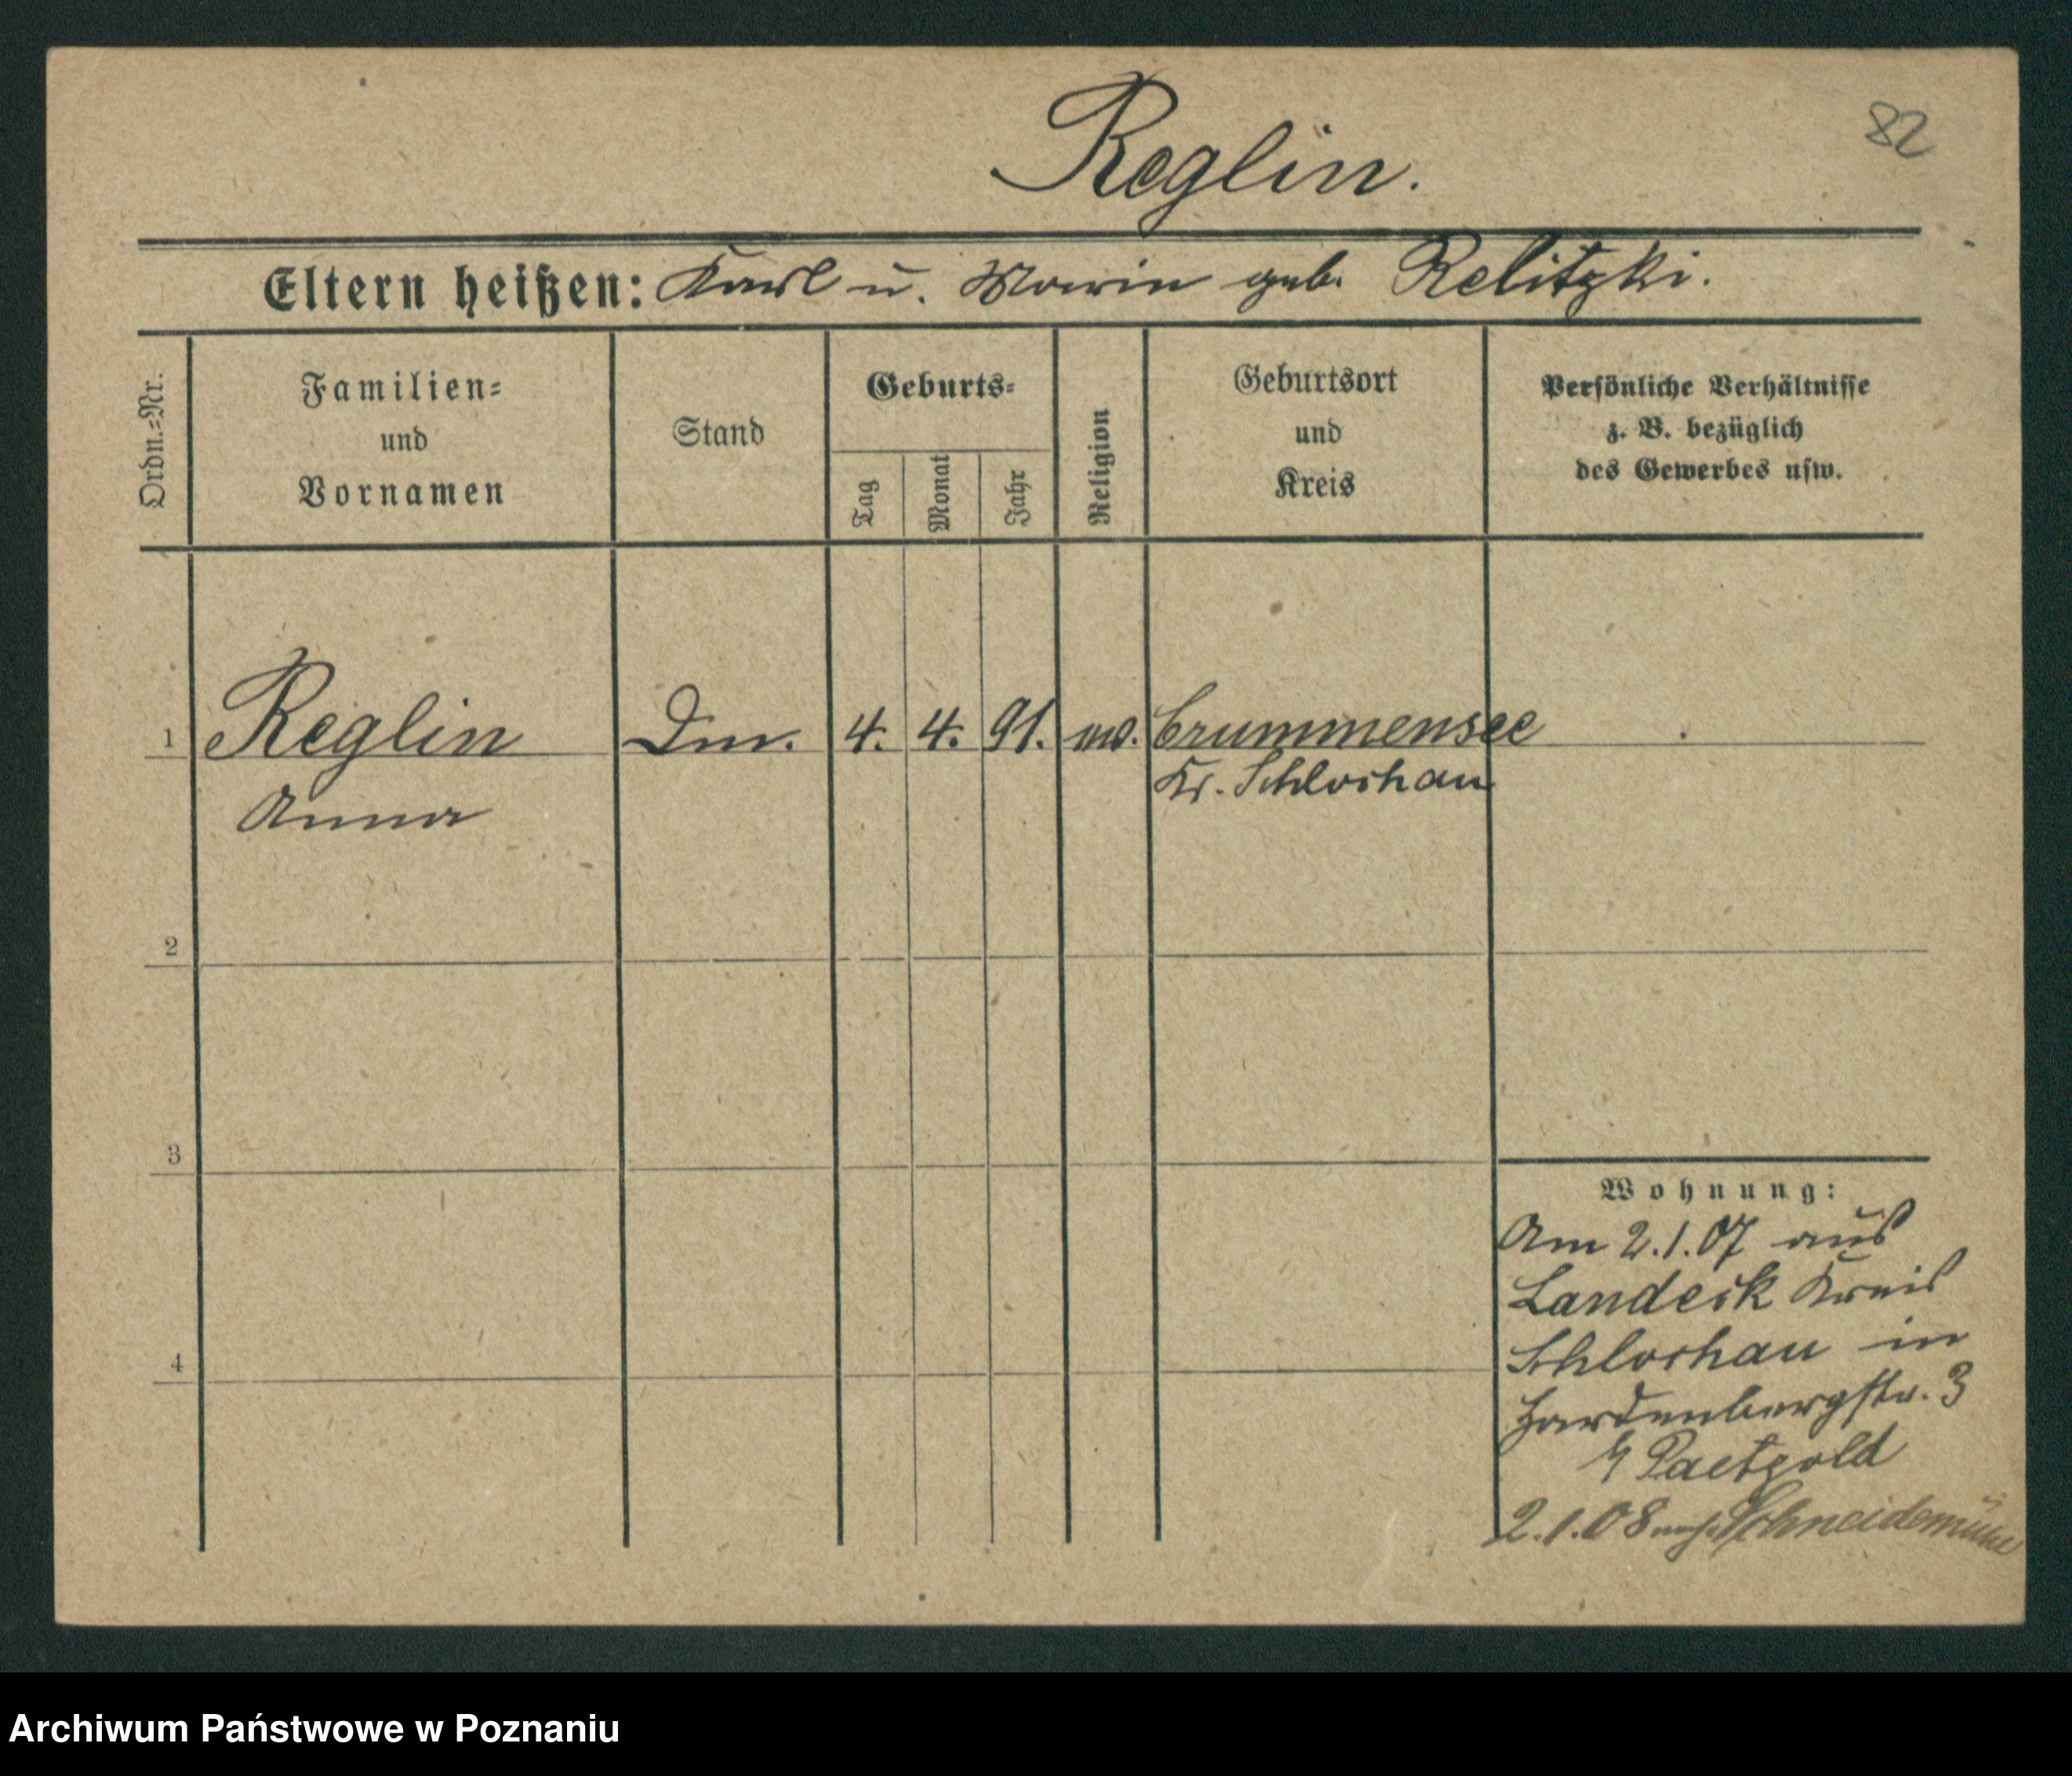 82
Reglin.
Eltern heißen: Karl u. Marie geb. Relitzki.
Ordn.-Nr.
Familien-
und
Vornamen
Stand
Geburts-
Tag
Monat
Jahr
Religion
Geburtsort
und
Kreis
Persönliche Verhältnisse
z. B. bezüglich
des Gewerbes usw.
1 Reglin 4. 4. 91. Crummensee
Anna Kr. Schlochau
2
3
4
Wohnung:
Am 2.1.07 aus
Landeck Kreis
Schlochau in
Hardenbergstr. 3
Paetzold
2.1.08 nach Schneidemühl
Archiwum Państwowe w Poznaniu